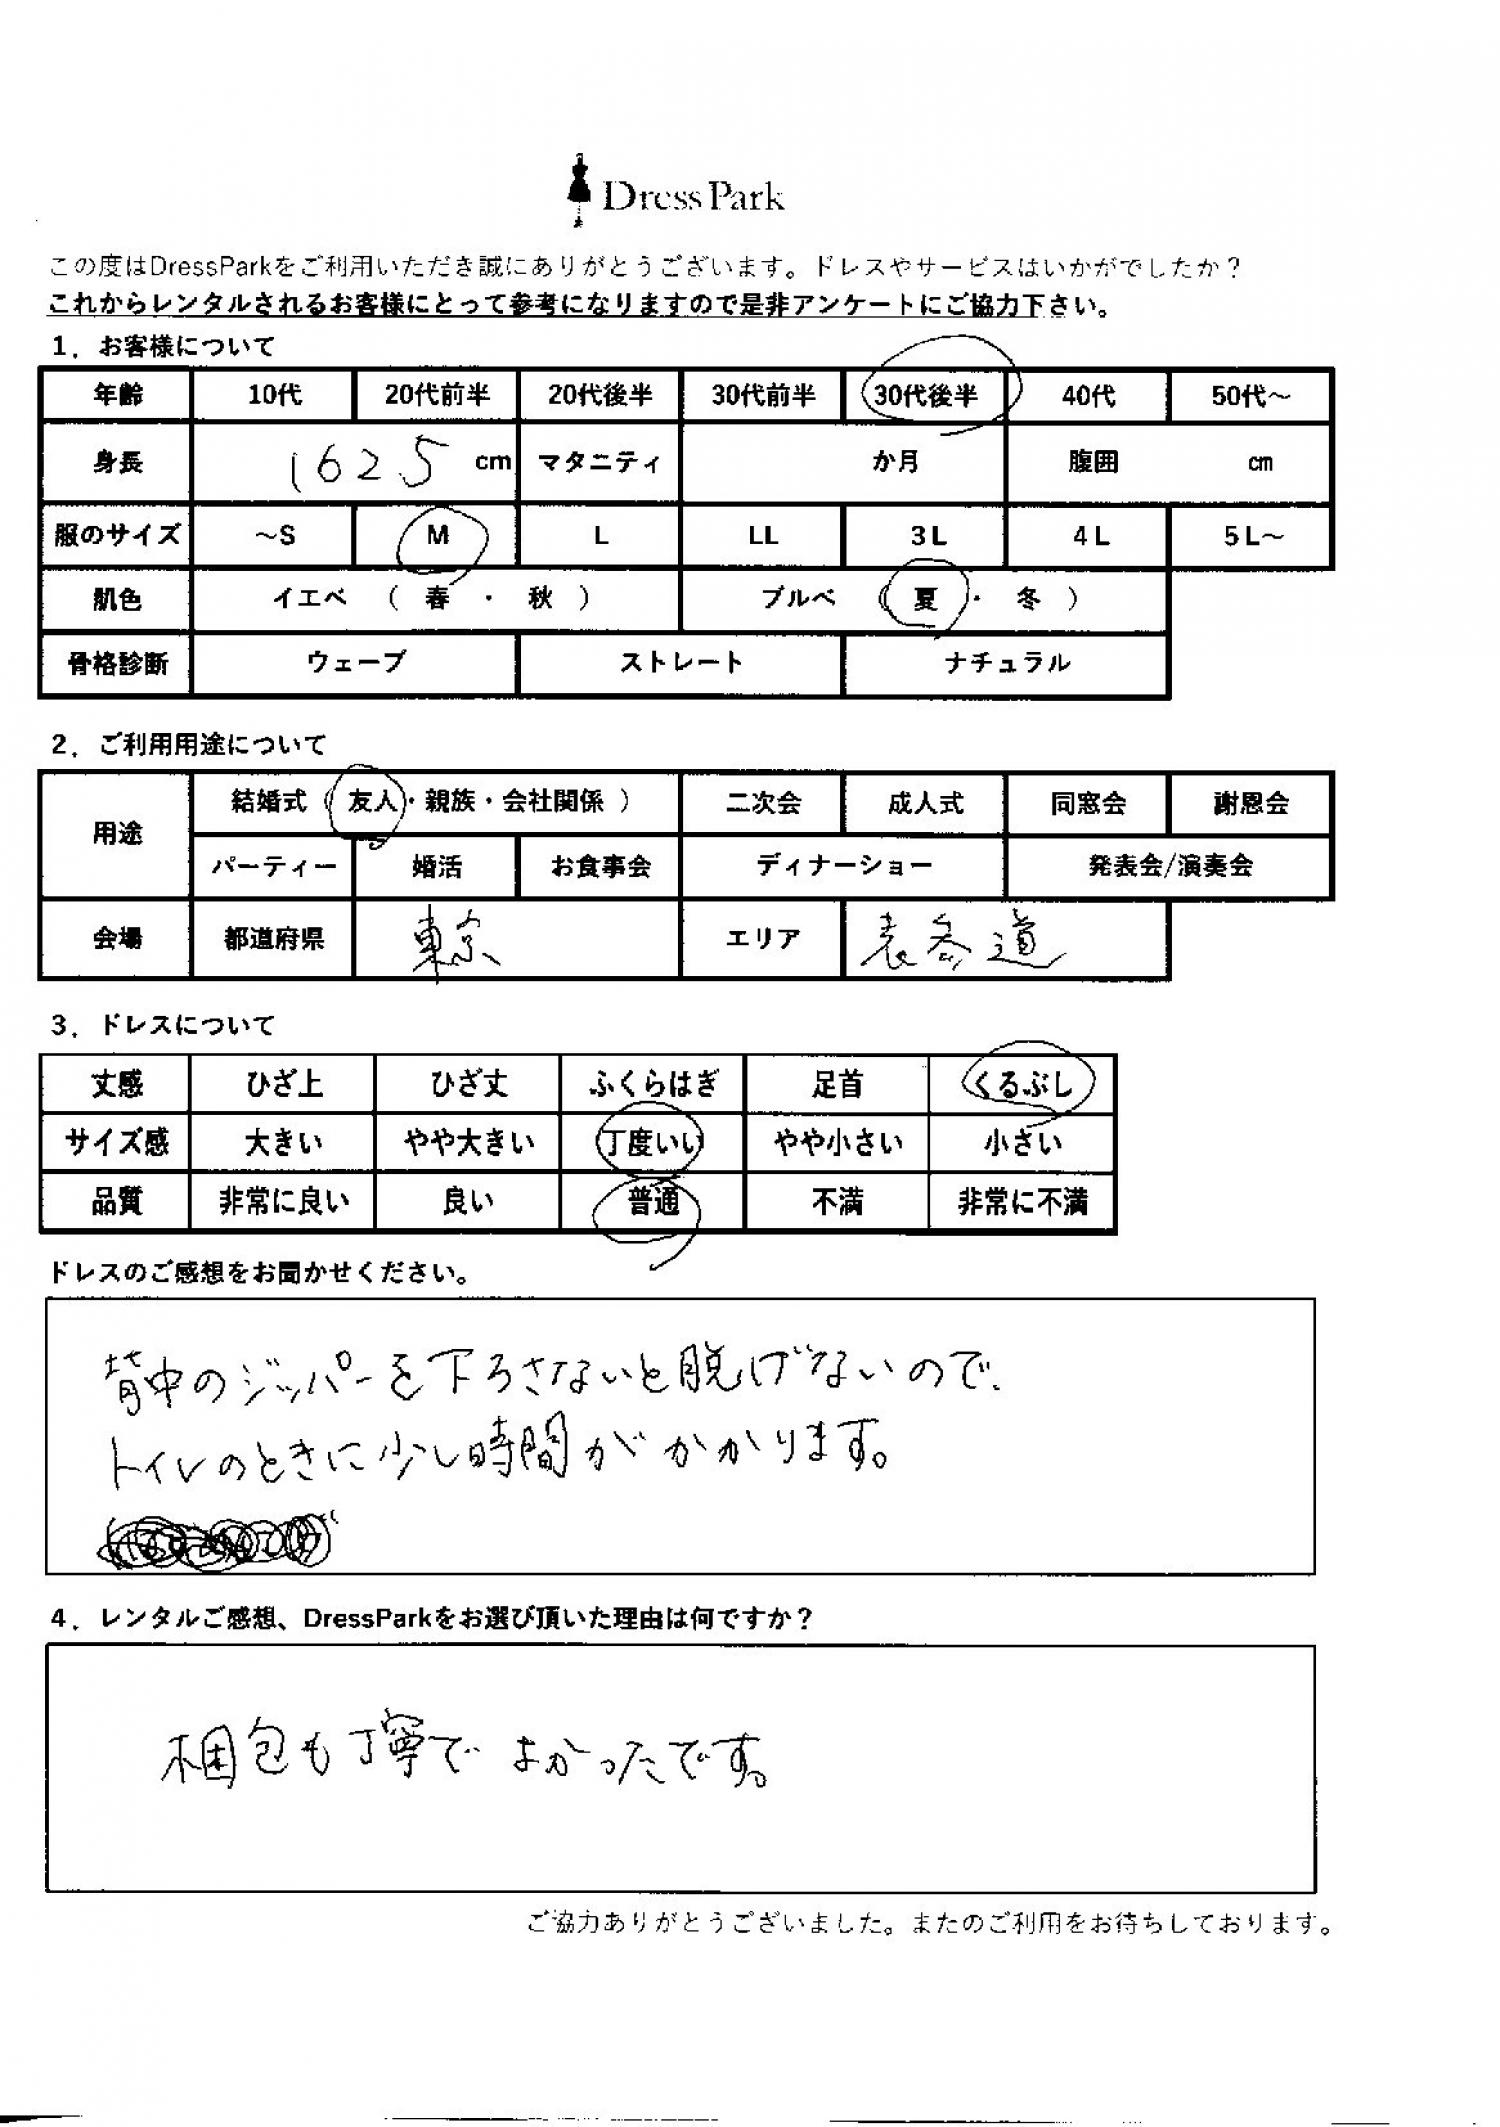 Dress Park
この度はDressParkをご利用いただき誠にありがとうございます。ドレスやサービスはいかがでしたか？
これからレンタルされるお客様にとって参考になりますので是非アンケートにご協力下さい。
1．お客様について
年齢 10代 20代前半 20代後半 30代前半 30代後半 40代 50代～
身長 1625 cm マタニティ か月 腹囲 cm
服のサイズ ～S M L LL 3L 4L 5L～
肌色 イエベ （ 春 ・ 秋 ） ブルベ （ 夏 ・ 冬 ）
骨格診断 ウェーブ ストレート ナチュラル
2．ご利用用途について
用途 結婚式（ 友人・親族・会社関係 ） 二次会 成人式 同窓会 謝恩会
パーティー 婚活 お食事会 ディナーショー 発表会/演奏会
会場 都道府県 東京 エリア 表参道
3．ドレスについて
丈感 ひざ上 ひざ丈 ふくらはぎ 足首 くるぶし
サイズ感 大きい やや大きい 丁度いい やや小さい 小さい
品質 非常に良い 良い 普通 不満 非常に不満
ドレスのご感想をお聞かせください。
背中のジッパーを下ろさないと脱げないので、
トイレのときに少し時間がかかります。
4．レンタルご感想、DressParkをお選び頂いた理由は何ですか？
梱包も丁寧でよかったです。
ご協力ありがとうございました。またのご利用をお待ちしております。